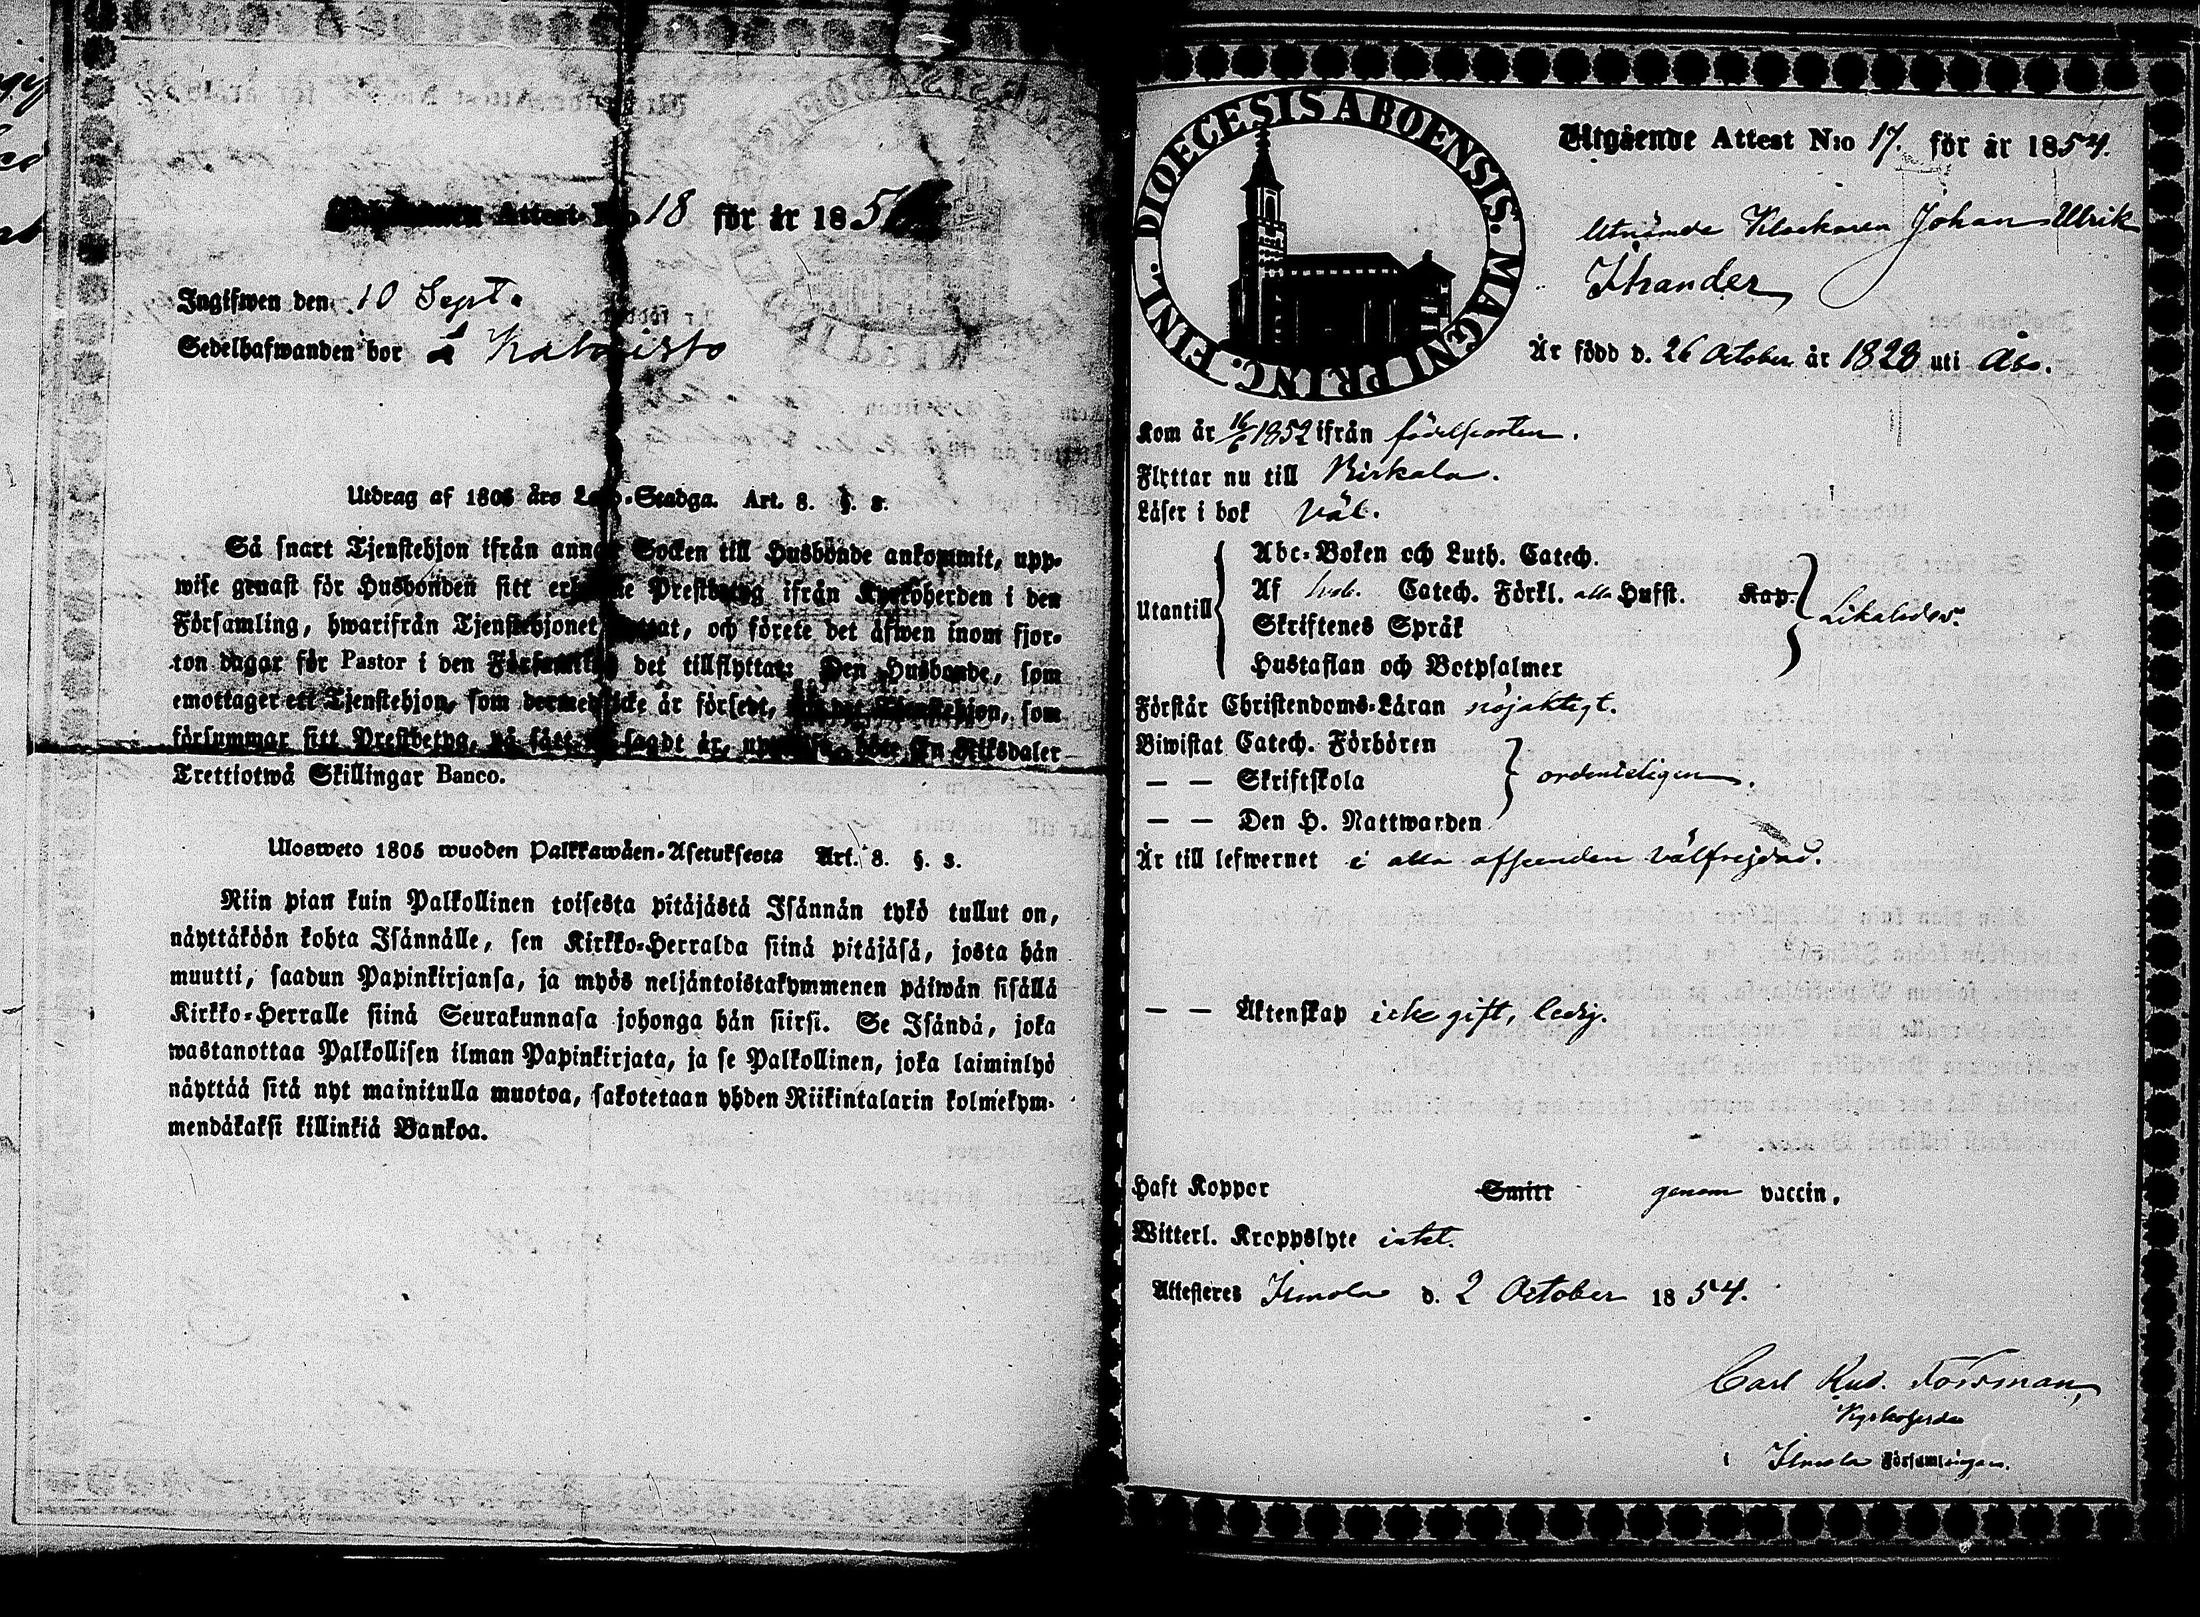 Attest N:o 18 för år 185
Ingifwen den 10 Sept.
Sedelhafwanden bor å
Utdrag af 1805 års Lego-Stadga. Art. 8. §. 3.
Så snart Tjenstehjon ifrån annan Socken till Husbonde ankommit, upp-
wise genast för Husbonden sitt erhållne Prestbetyg ifrån Kyrkoherden i den
Församling, hwarifrån Tjenstehjonet flyttat, och förete det äfwen inom fjor-
ton dagar för Pastor i den Församling det tillflyttat: Den Husbonde, som
emottager ett Tjenstehjon, som dermed icke är försedt, Tjenstehjon, som
försummar sitt Prestbetyg, på sätt sagdt är, böte En Riksdaler
Trettiotwå Skillingar Banco.
Ulosweto 1805 wuoden Palkkawäen-Asetuksesta Art. 8. §. 3.
Niin pian kuin Palkollinen toisesta pitäjästä Isännän tykö tullut on,
näyttäköön kohta Isännälle, sen Kirkko-Herralda siinä pitäjäsä, josta hän
muutti, saadun Papinkirjansa, ja myös neljäntoistakymmenen päiwän sisällä
Kirkko-Herralle siinä Seurakunnasa johonga hän siirsi. Se Isändä, joka
wastanottaa Palkollisen ilman Papinkirjata, ja se Palkollinen, joka laiminlyö
näyttää sitä nyt mainitulla muotoa, sakotetaan yhden Riikintalarin kolmekym-
mendäkaksi killinkiä Bankoa.
DIOECESIS ABOENSIS. MAGNI PRINC. FINL.
Utgående Attest N:o 17. för år 1854.
Utnämde Klockaren Johan Ulrik
Ithander,
Är född d. 26 October år 1828 uti Åbo.
Kom år 16/6 1852 ifrån födelseorten.
Flyttar nu till Birkala.
Läser i bok väl.
Utantill
Abc-Boken och Luth. Catech.
Af Catech. Förkl. alla Hufst. Kap.
Skriftenes Språk
Hustaflan och Botpsalmer
Likaledes.
Förstår Christendoms-Läran nöjaktigt.
Biwistat Catech. Förhören
— — Skriftskola
— — Den H. Nattwarden
ordenteligen.
Är till lefwernet i alla afseenden välfrejdad.
— — Äktenskap icke gift, ledig.
Haft Koppor Smitt genom vaccin.
Witterl. Kroppslyte intet.
Attesteres Ilmola d. 2 October 1854.
Carl Rud. Forsman,
Kyrkoherde
i Ilmola Församlingen.